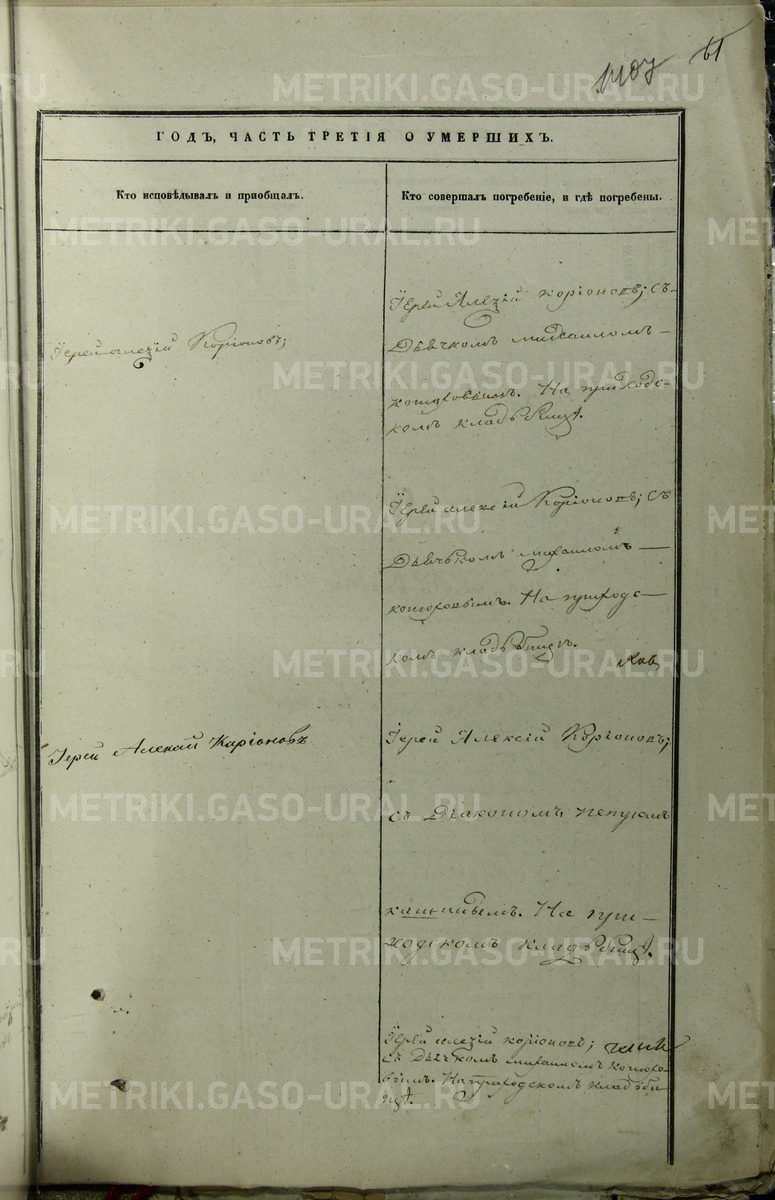 61
ГОДЪ, ЧАСТЬ ТРЕТІЯ О УМЕРШИХЪ.
Кто исповѣдывалъ и пріобщалъ.
Кто совершалъ погребеніе, и гдѣ погребены.
Іерей Алеѯій Коріоновъ;
Іерей Алеѯій Коріоновъ; съ
Дьячкомъ Михаиломъ
Конюховымъ. На приходс-
комъ кладъбищѣ.
Іерей Алексій Коріоновъ; съ
Дьячькомъ Михаиломъ
Конюховымъ. На приходс-
комъ кладъбищѣ.
Іерей Алексій Каріоновъ
Іерей Алексій Коріоновъ;
съ Діакономъ
На при-
ходскомъ кладъбищѣ.
Іерей Алеѯій Коріоновъ;
съ Дьячкомъ Михаиломъ Конюхо-
вымъ. На приходскомъ кладъби-
щѣ.
METRIKI.GASO-URAL.RU